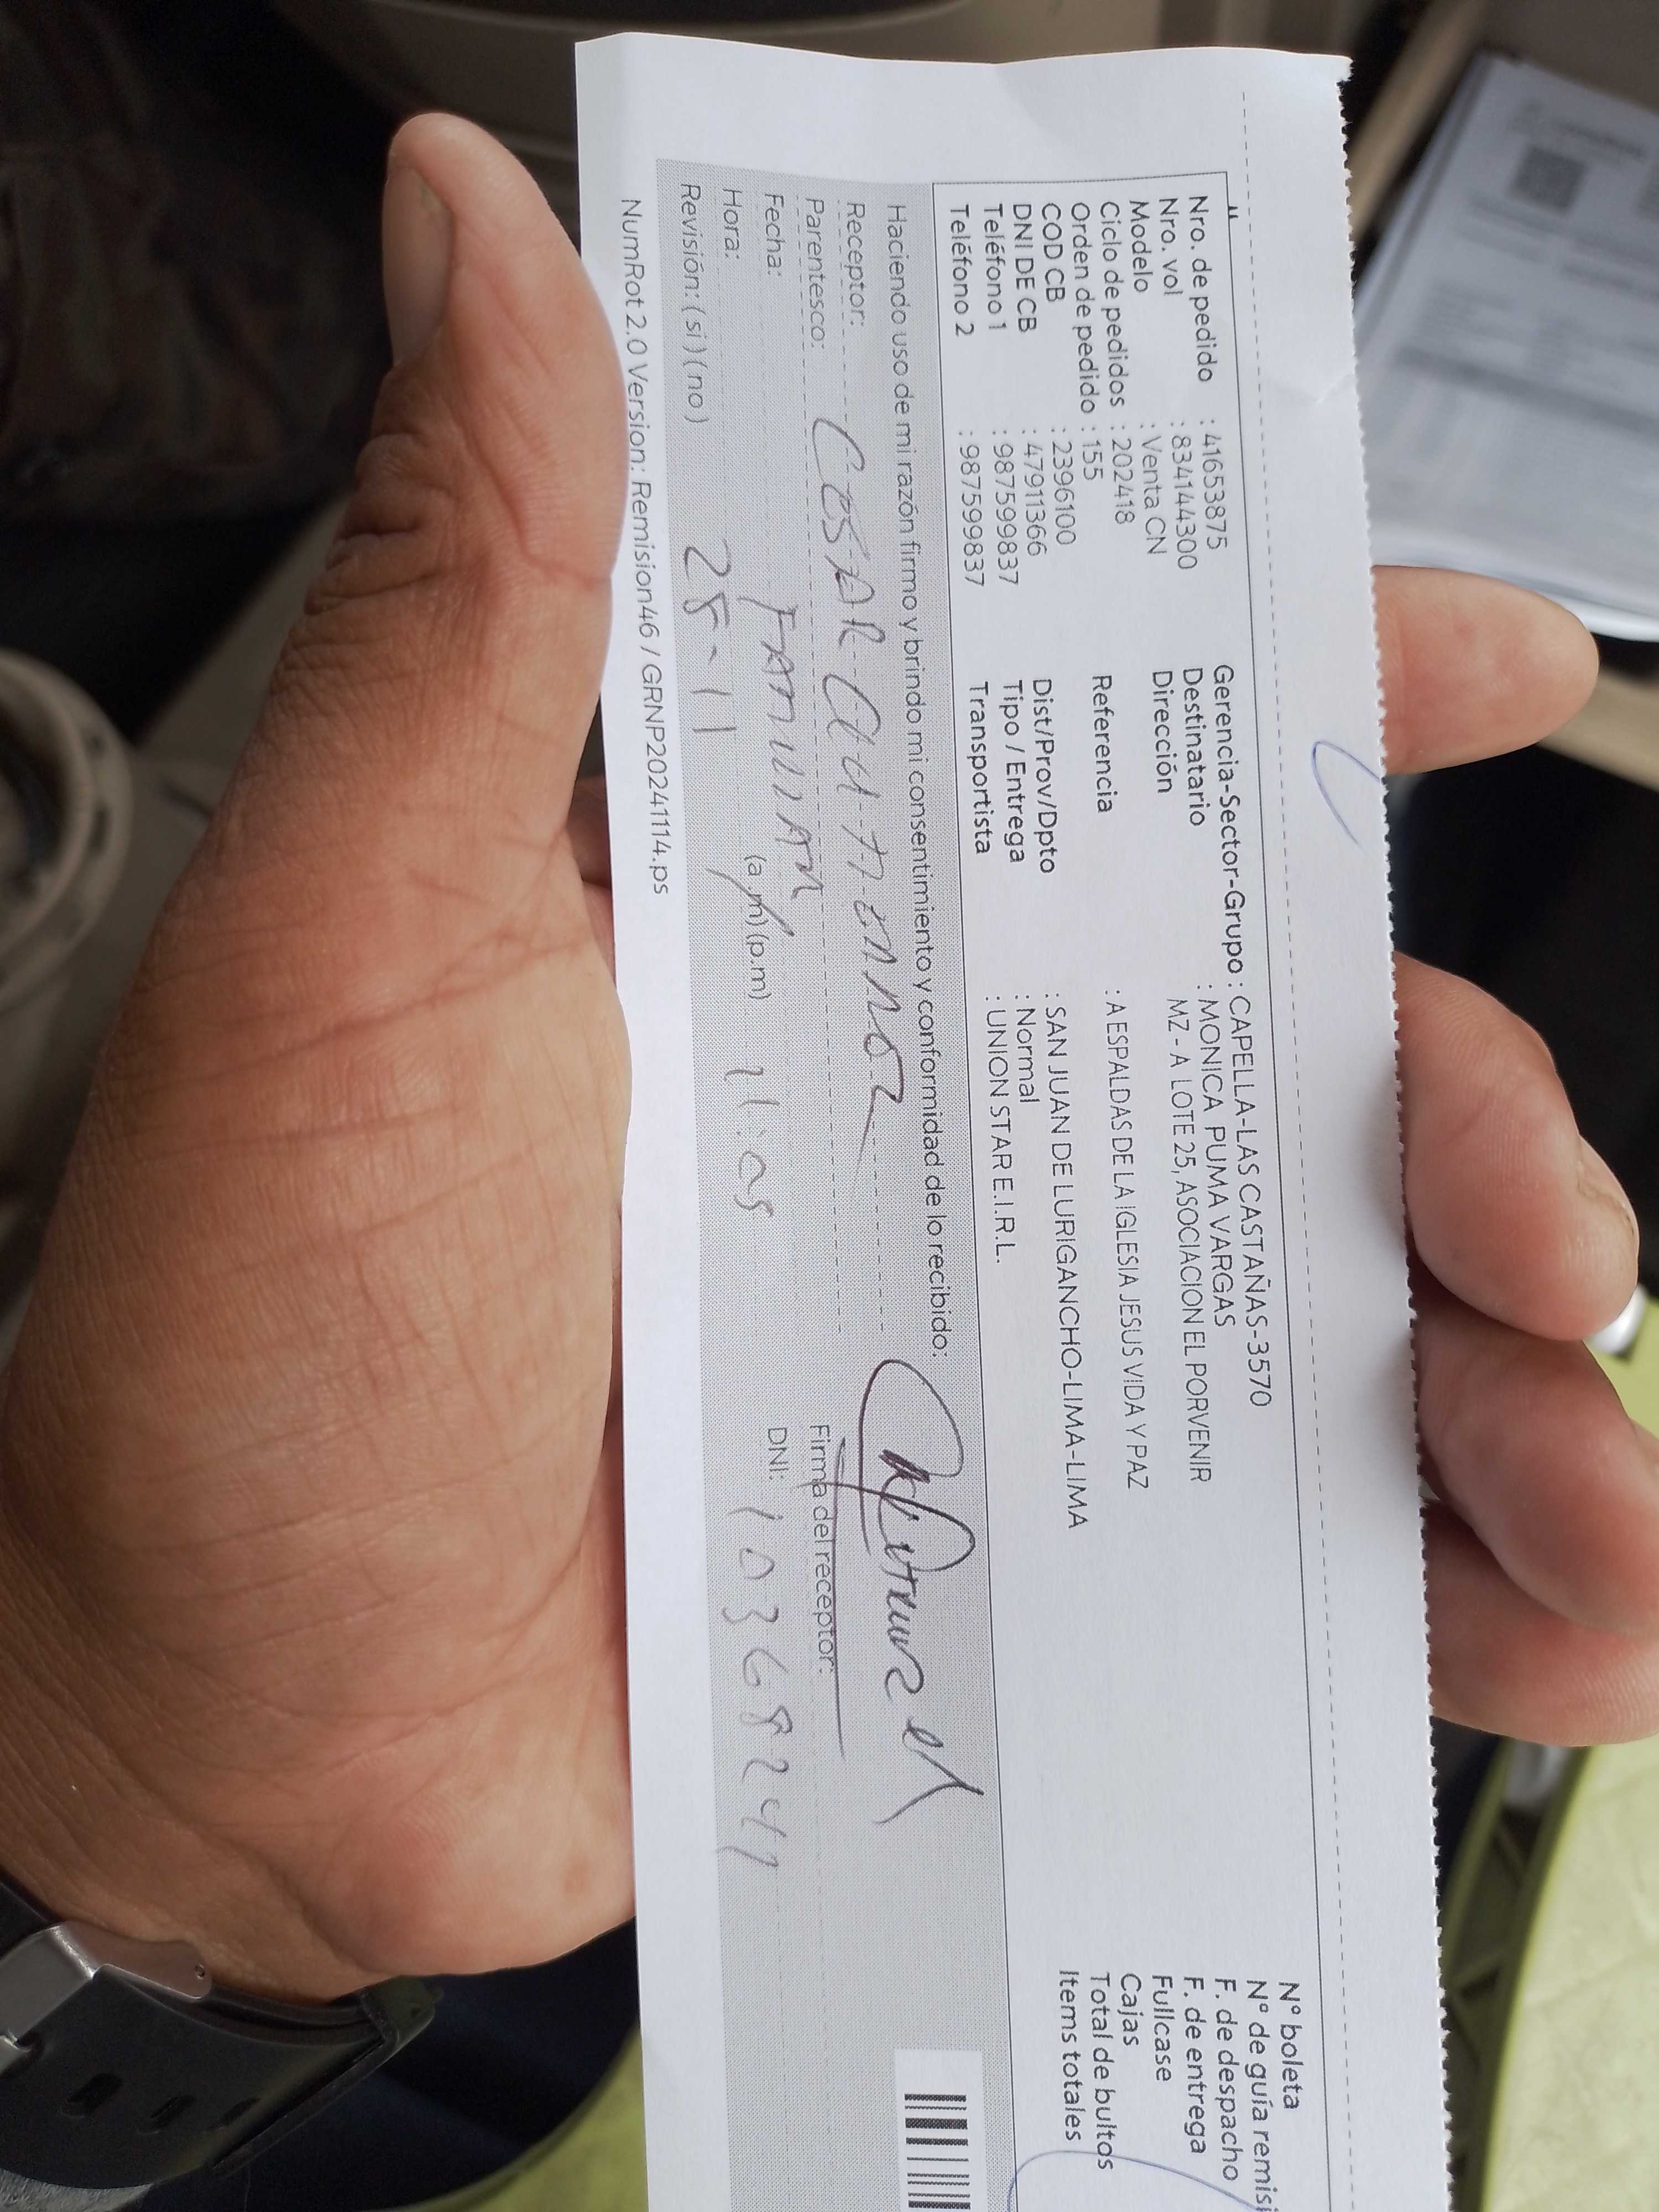 Nro. de pedido : 41653875
Nro. vol : 834144300
Modelo : Venta CN
Ciclo de pedidos : 202418
Orden de pedido : 155
COD CB : 2396100
DNI DE CB : 47911366
Teléfono 1 : 987599837
Teléfono 2 : 987599837
Gerencia-Sector-Grupo : CAPELLA-LAS CASTAÑAS-3570
Destinatario : MONICA PUMA VARGAS
Dirección MZ - A LOTE 25, ASOCIACION EL PORVENIR
Referencia : A ESPALDAS DE LA IGLESIA JESUS VIDA Y PAZ
Dist/Prov/Dpto : SAN JUAN DE LURIGANCHO-LIMA-LIMA
Tipo / Entrega : Normal
Transportista : UNION STAR E.I.R.L.
N° boleta
N° de guía remisi
F. de despacho
F. de entrega
Fullcase
Cajas
Total de bultos
Items totales
Haciendo uso de mi razón firmo y brindo mi consentimiento y conformidad de lo recibido:
Receptor: CESAR
Parentesco: FAMILIAR
Fecha: 25-11
Hora: (a.m) (p.m)
Revisión: (si) (no)
Firma del receptor:
DNI: 10368241
NumRot 2.0 Version: Remision46 / GRNP20241114.ps